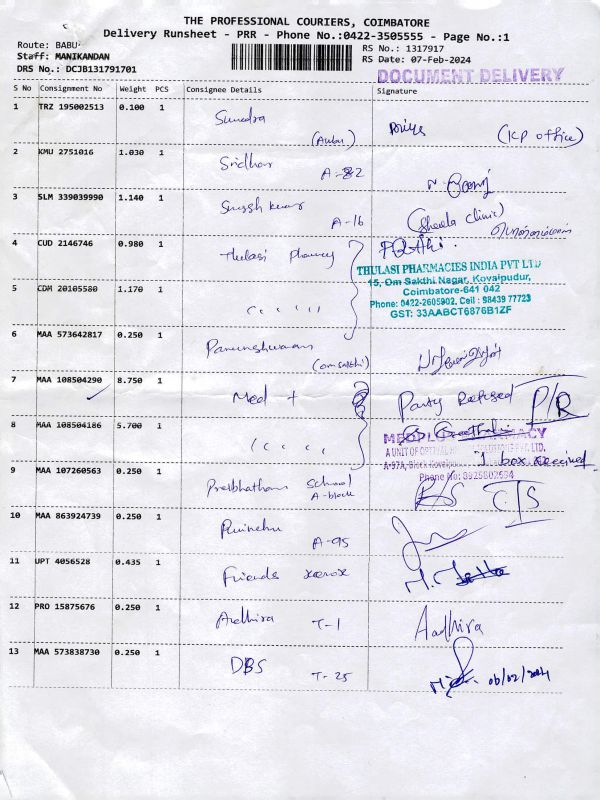 THE PROFESSIONAL COURIERS, COIMBATORE
Delivery Runsheet - PRR - Phone No.:0422-3505555 - Page No.:1
Route: BABU
Staff: MANIKANDAN
DRS No.: DCJB131791701
RS No.: 1317917
RS Date: 07-Feb-2024
DOCUMENT DELIVERY
S No Consignment No Weight PCS Consignee Details Signature
1 TRZ 195002513 0.100 1 (KP office)
2 KMU 2751016 1.030 1 Sridhar
A-82
3 SLM 339039990 1.140 1 Suresh kumar (Sheela clinic)
A-16
4 CUD 2146746 0.980 1 Thulasi
THULASI PHARMACIES INDIA PVT LTD
15, Om Sakthi Nagar, Kovaipudur,
Coimbatore-641 042
Phone: 0422-2605902, Cell : 98439 77723
GST: 33AABCT6876B1ZF
5 CDM 20105580 1.170 1 " "
6 MAA 573642817 0.250 1
(om sakthi)
7 MAA 108504290 8.750 1 Med + Party Refused P/R
8 MAA 108504186 5.700 1 " "
MEDPLUS PHARMACY
A UNIT OF LTD.
1 box received
Phone No: 8925802634
9 MAA 107260563 0.250 1 School
A-block
10 MAA 863924739 0.250 1
A-95
11 UPT 4056528 0.435 1 Friends xerox
12 PRO 15875676 0.250 1 Aadhira T-1 Aadhira
13 MAA 573838730 0.250 1 DBS
T-25 06/02/2024